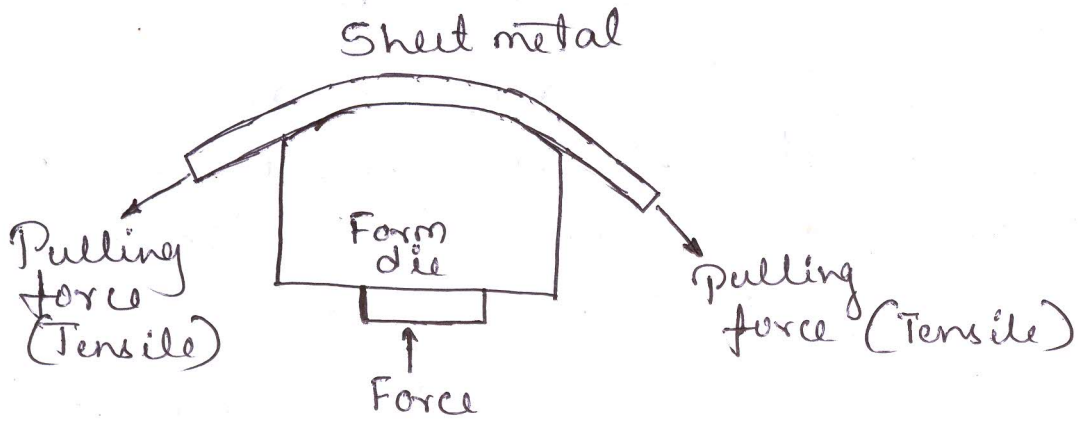 Sheet metal
Pulling
force
(Tensile)
Form
die
Pulling
force (Tensile)
Force